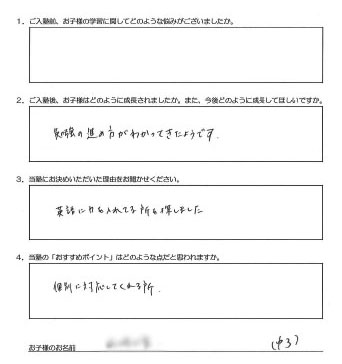 1. ご入塾前、お子様の学習に関してどのような悩みがございましたか。
2. ご入塾後、お子様はどのように成長されましたか。また、今後どのように成長してほしいですか。
勉強の進め方がわかってきたようです.
3. 当塾にお決めいただいた理由をお聞かせください。
英語に力を入れてる所を探しました
4. 当塾の「おすすめポイント」はどのような点だと思われますか。
個別に対応してくれる所.
お子様のお名前 (中3)